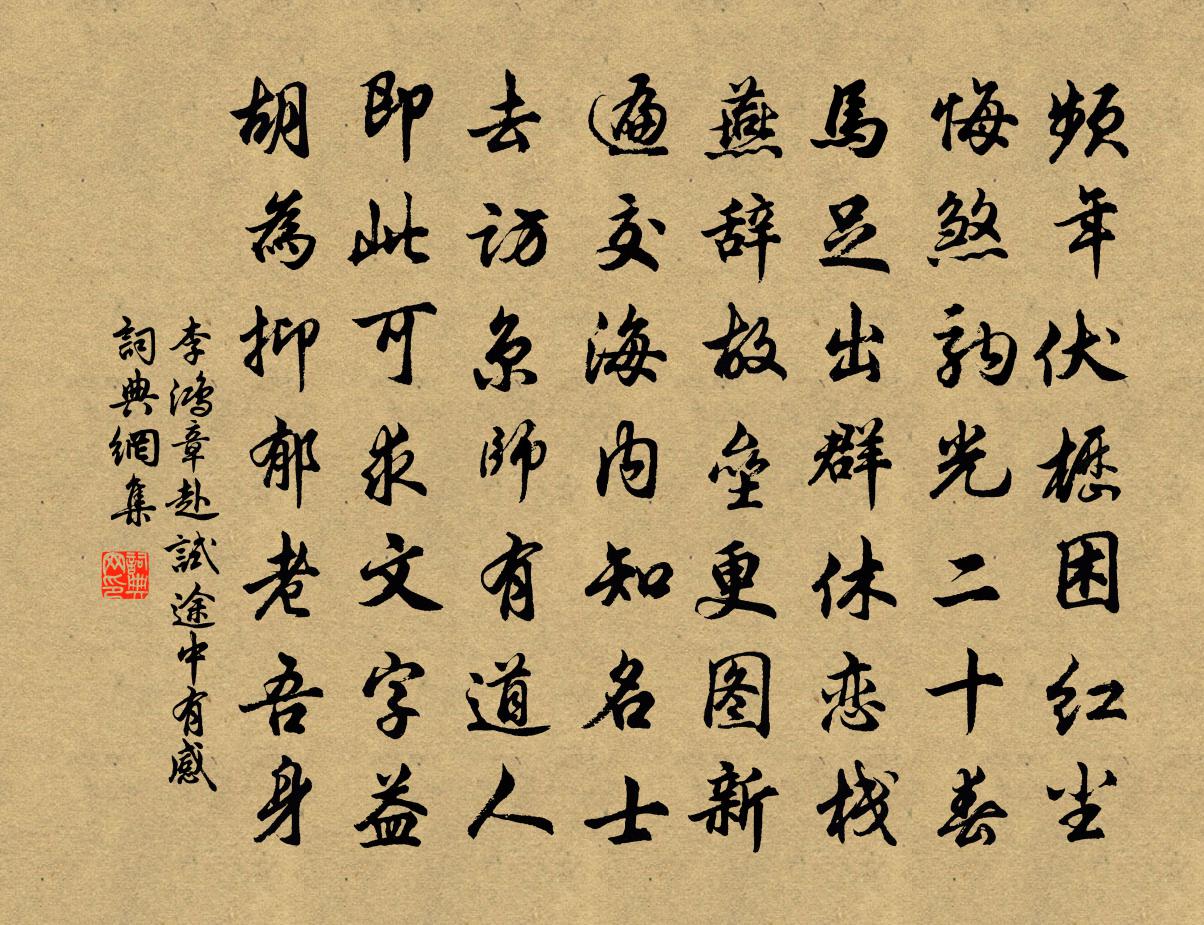 频年伏枥困红尘
悔煞驹光二十春
馬足出群休恋栈
燕辞故垒更图新
遍交海内知名士
去访京师有道人
即此可求文字益
胡為抑郁老吾身
李鴻章赴試途中有感
詞典網集
詞典網印